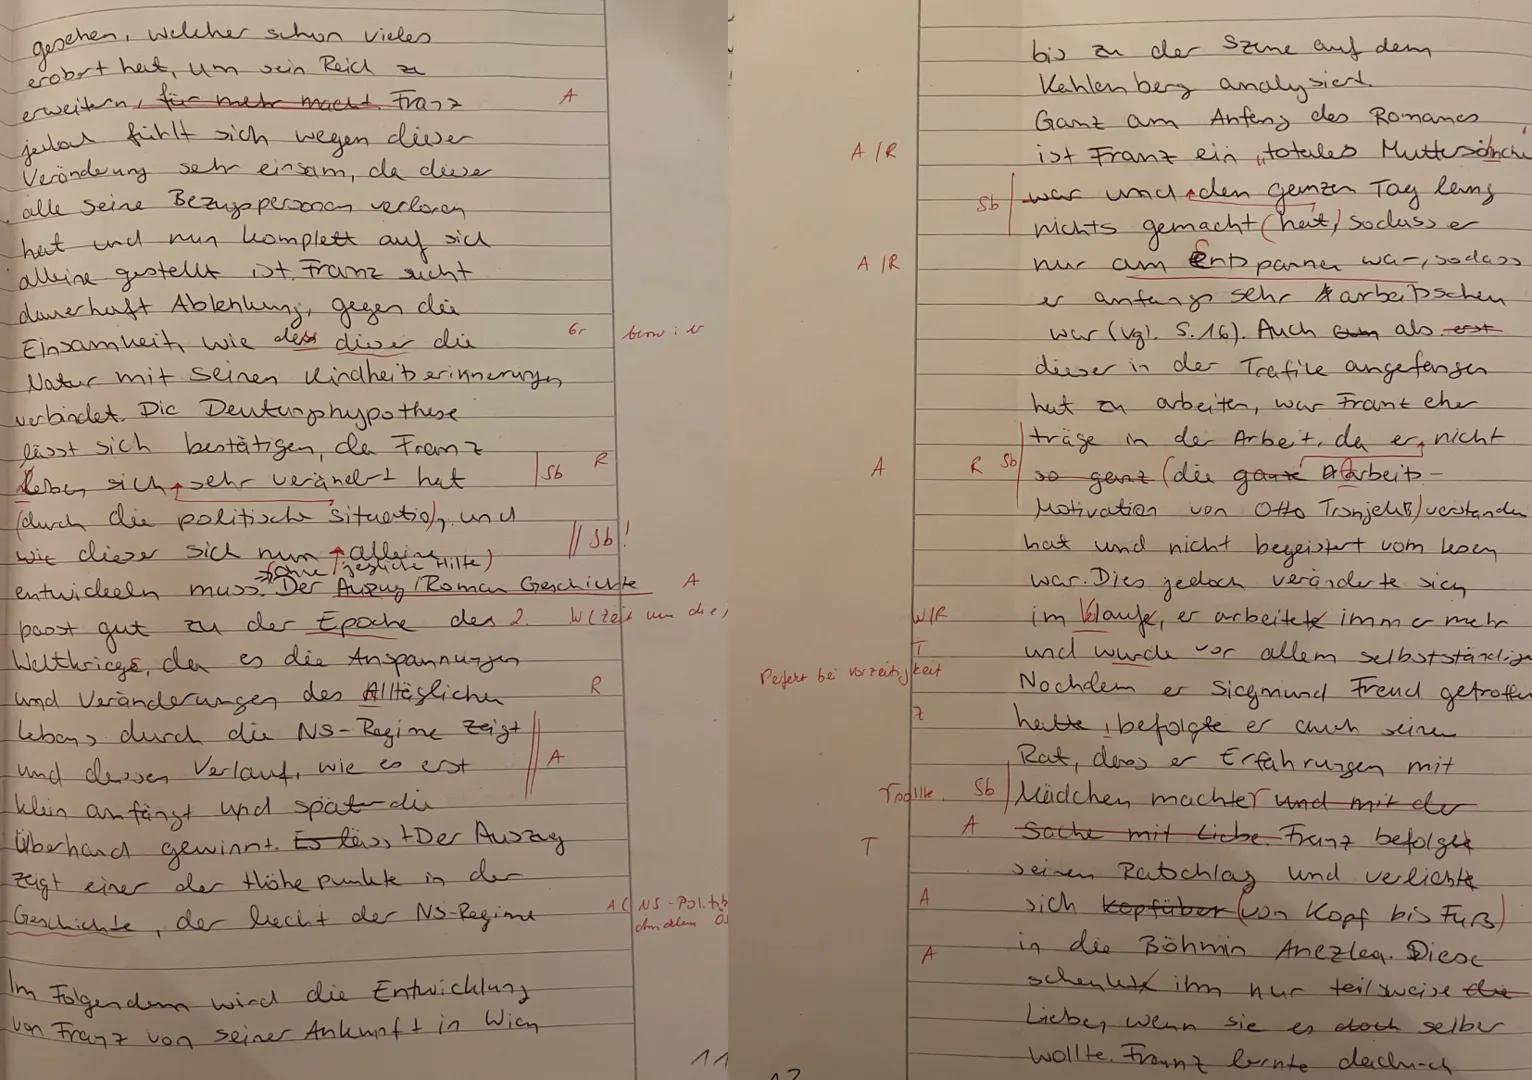 gesehen, welcher schon vieles
erobert hat, um sein Reich zu
erweitern, für mehr macht. Franz
A
jedoch fühlt sich wegen dieser
Veränderung sehr einsam, da dieser
alle seine Bezugspersonen verloren
hat und nun komplett auf sich
alleine gestellt ist. Franz sucht
dauerhaft Ablenkung, gegen die
Einsamkeit, wie dess dieser die
Gr
Natur mit seinen Kindheitserinnerungen
verbindet. Die Deutunghypothese
lässt sich bestätigen, da Franz
Leben sich sehr verändert hat
Sb R
(durch die politische Situation, und
wie dieser sich nun alleine
Sb!
(ohne jegliche Hilfe)
entwickeln muss. Der Auszug/Roman Geschichte
A
passt gut zu der Epoche des 2.
W (Zeit um die)
Weltkriegs, da es die Anspannungen
und Veränderungen des Alltäglichen
R
Lebens durch die NS-Regime zeigt
und dessen Verlauf, wie es erst
A
klein anfängt und später die
Überhand gewinnt. Es läss t Der Auszug
zeigt einer der Höhepunkte in der
Geschichte, der Macht der NS-Regime
A ( NS-Polit
Im Folgendem wird die Entwicklung
von Franz von seiner Ankunft in Wien
11
bis zu der Szene auf dem
Kahlenberg analysiert.
Ganz am Anfang des Romanes
A/R
ist Franz ein „totales Muttersöhnche
Sb
war und den ganzen Tag lang
nichts gemacht (hat) sodass er
A/R
nur am Entspannen war, sodass
er anfangs sehr arbeitsscheu
war (vgl. S. 16). Auch als erst
dieser in der Trafike angefangen
hat zu arbeiten, war Franz eher
träge in der Arbeit, da er nicht
A R Sb
so ganz (die ganze Arbeit-
Motivation von Otto Trsnjeks) verstanden
hat und nicht begeistert vom lesen
war. Dies jedoch veränderte sich
W/R
im Vlaufe, er arbeitete immer mehr
T
und wurde vor allem selbstständige
Perfekt bei Vorzeitigkeit
Nachdem er Siegmund Freud getroffen
Z
hatte, befolgte er auch seinen
Rat, dass er Erfahrungen mit
Sb
Mädchen machte und mit der
A
Sache mit Liebe. Franz befolgte
T
seinen Ratschlag und verliebte
A
sich kopfüber (von Kopf bis Fuß)
in die Böhmin Anezka. Diese
A
schenkte ihm nur teilsweise die
Liebe, wenn sie es doch selber
wollte. Franz lernte dadurch
12